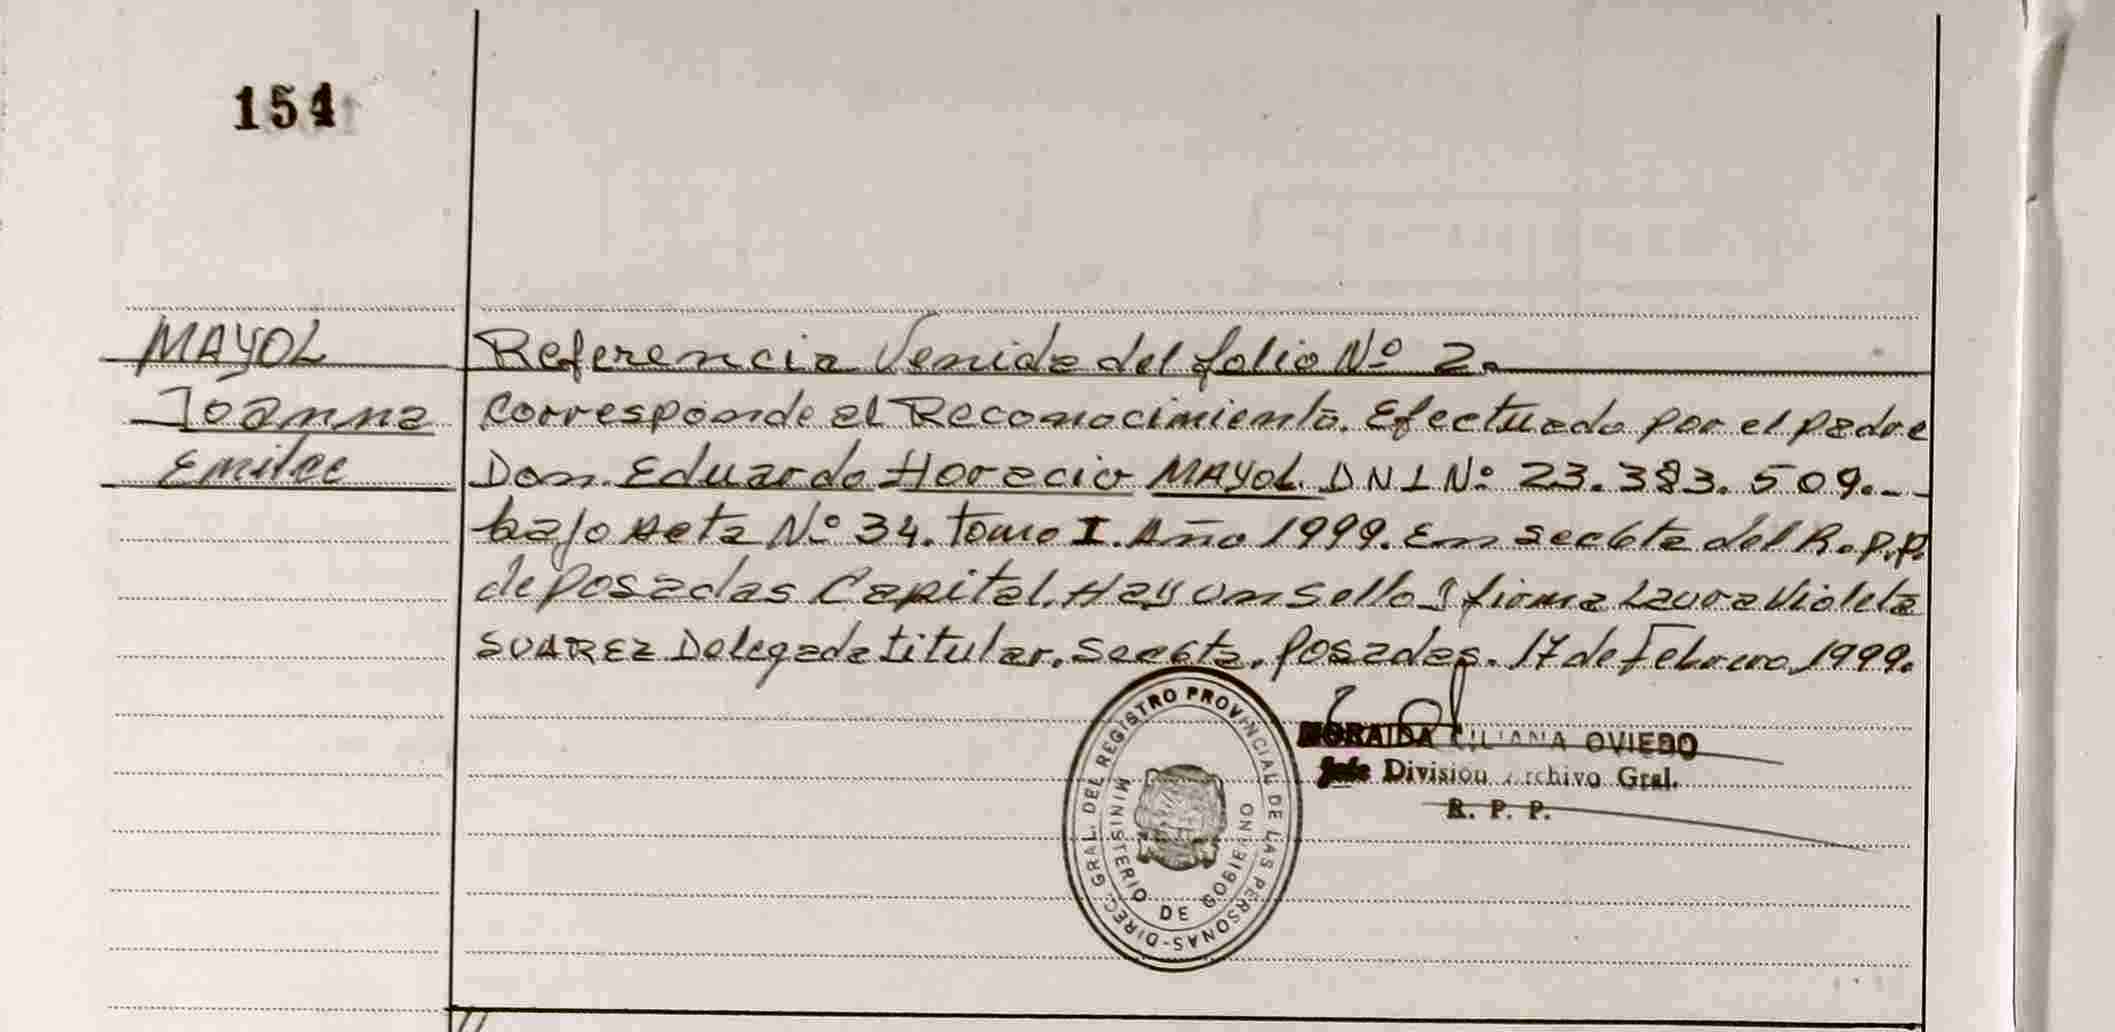 154
MAYOL
Joanna
Emilce
Referencia Venida del folio Nº 2.
Corresponde al Reconocimiento. Efectuado por el padre
Don. Eduardo Horacio MAYOL. DNI Nº 23.383.509.--
bajo Acta Nº 34. Tomo I. Año 1999. En Secc6ta del R.P.P.
de Posadas Capital. Hay un sello y firma Laura Violeta
SUAREZ Delegada titular. Secc6ta. Posadas. 17 de Febrero 1999.
DIREC. GRAL. DEL REGISTRO PROVINCIAL DE LAS PERSONAS-
MINISTERIO DE GOBIERNO
LILIANA OVIEDO
Jefe División Archivo Gral.
R. P. P.